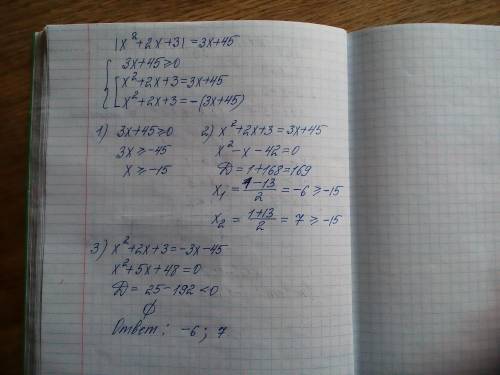 |x²+2x+3| = 3x+45
{ 3x+45≥0
[ x²+2x+3=3x+45
[ x²+2x+3=-(3x+45)
1) 3x+45≥0
3x≥-45
x≥-15
2) x²+2x+3=3x+45
x²-x-42=0
D=1+168=169
x₁ = (1-13)/2 = -6 ≥ -15
x₂ = (1+13)/2 = 7 ≥ -15
3) x²+2x+3=-3x-45
x²+5x+48=0
D = 25-192<0
∅
Ответ: -6; 7